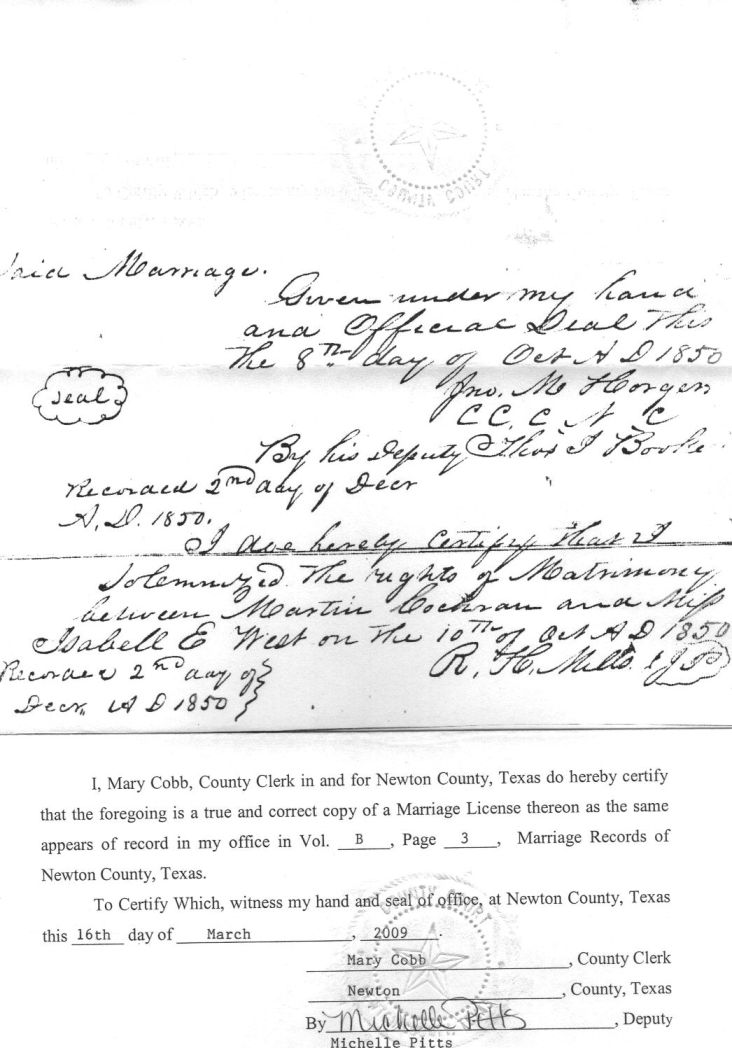 COUNTY COURT
said Marriage.
Given under my hand
and Official Seal This
the 8th day of Oct A D 1850
Seal
Jno. M Horger
C C, C, N, C
By his Deputy Thos J Booke
Recorded 2nd day of Decr
A, D. 1850.
I doe hereby Certify that I
Solemnized The rights of Matrimony
between Martin Cochran and Miss
Isabell E West on the 10th of Oct A D 1850
R. H. Mills. J P
Recorded 2nd day of
Decr, A D 1850
I, Mary Cobb, County Clerk in and for Newton County, Texas do hereby certify
that the foregoing is a true and correct copy of a Marriage License thereon as the same
appears of record in my office in Vol. B, Page 3, Marriage Records of
Newton County, Texas.
To Certify Which, witness my hand and seal of office, at Newton County, Texas
this 16th day of March, 2009.
COUNTY COURT
Mary Cobb, County Clerk
Newton, County, Texas
By Michelle Pitts, Deputy
Michelle Pitts